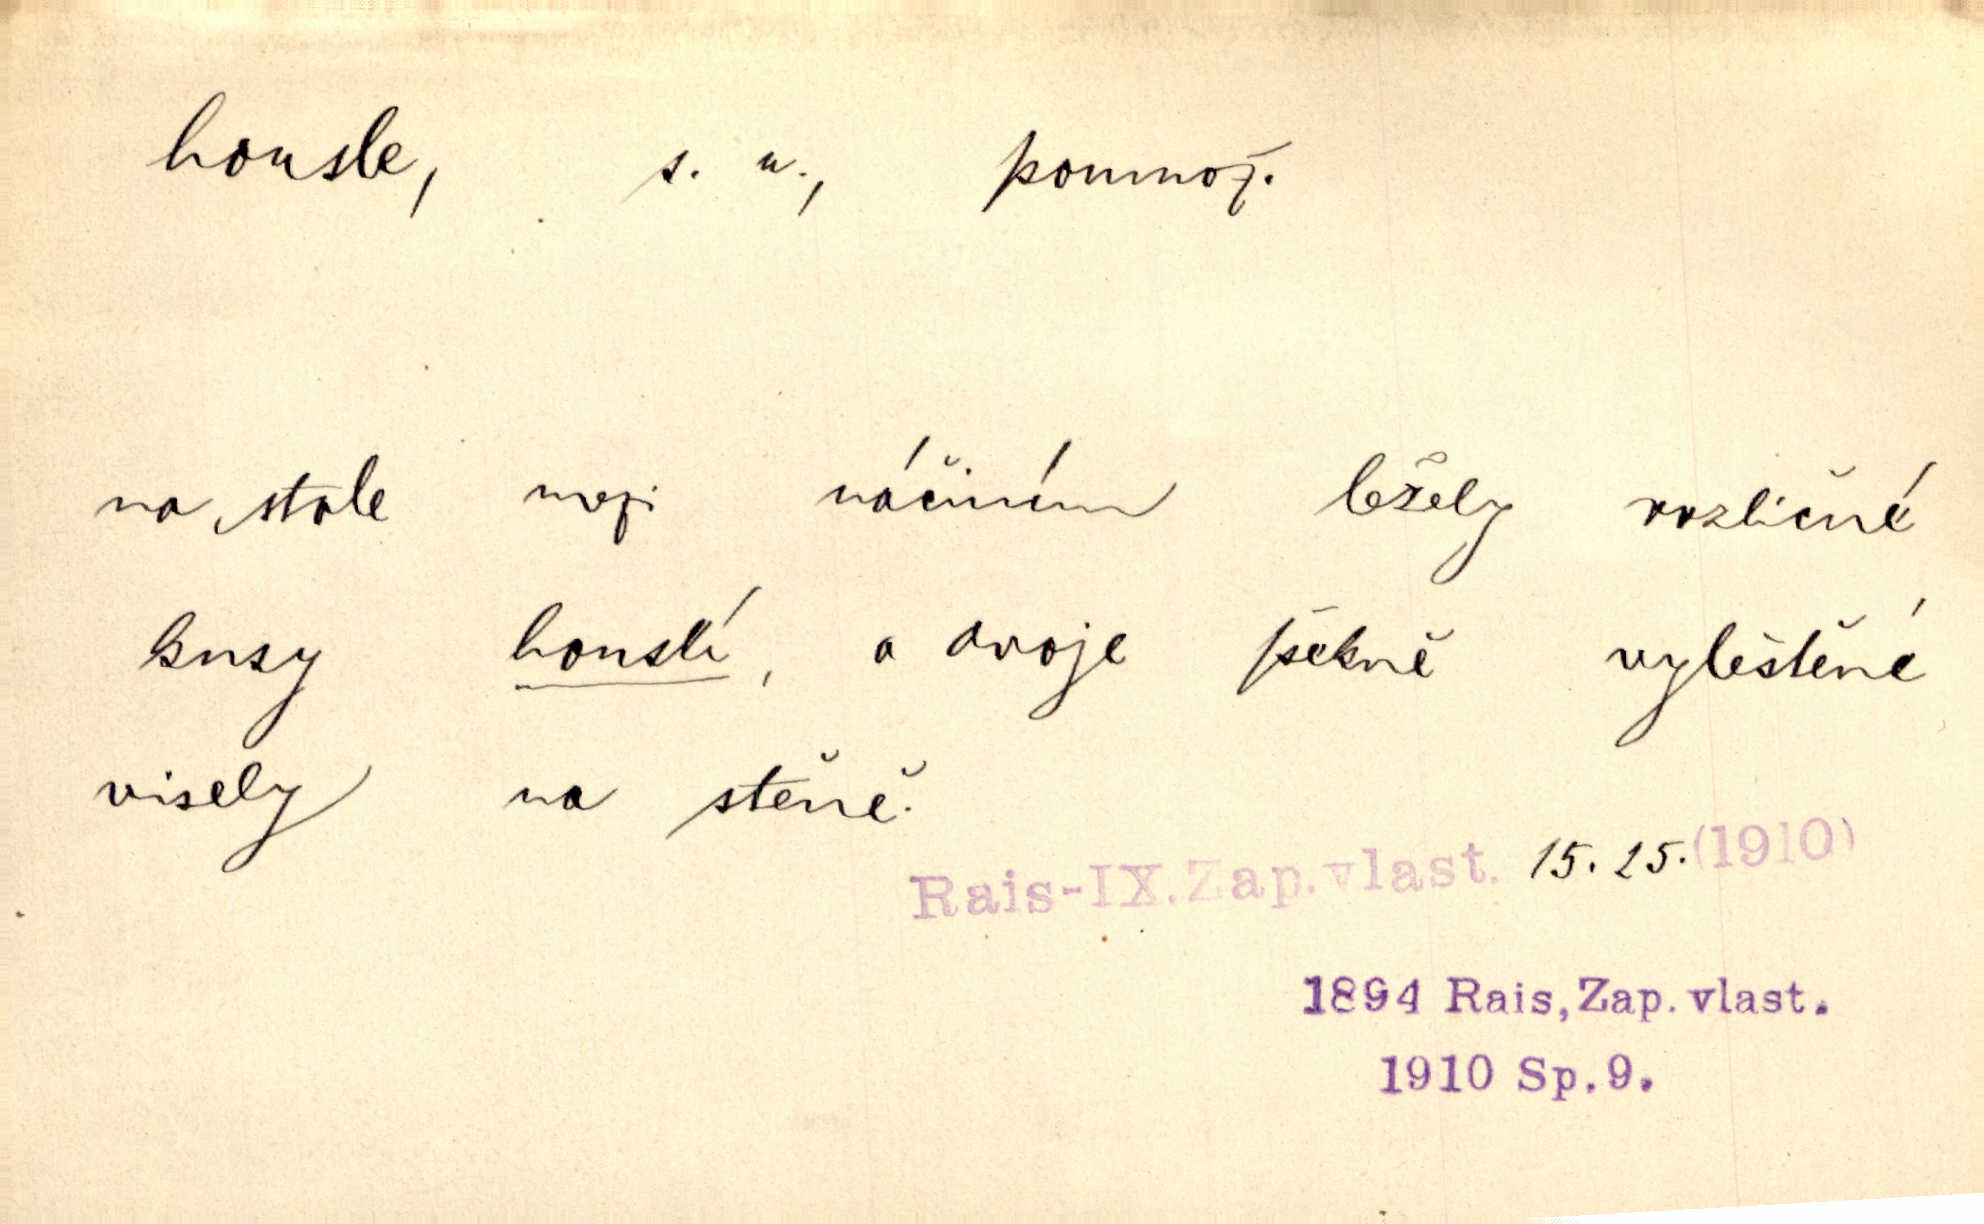 housle, s. u., pomnož.
na stole mezi náčiním ležely rozličné
kusy houslí, a dvoje pěkně vyleštěné
visely na stěně.
Rais-IX. Zap. vlast. 15. 25. (1910)
1894 Rais, Zap. vlast.
1910 Sp. 9.